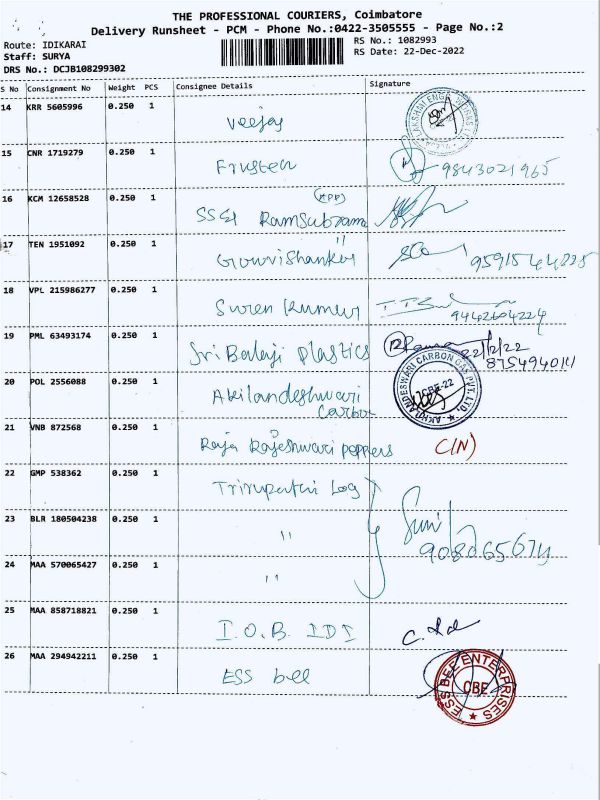 THE PROFESSIONAL COURIERS, Coimbatore
Delivery Runsheet - PCM - Phone No.:0422-3505555 - Page No.:2
Route: IDIKARAI
RS No.: 1082993
Staff: SURYA
RS Date: 22-Dec-2022
DRS No.: DCJB108299302
S No Consignment No Weight PCS Consignee Details Signature
14 KRR 5605996 0.250 1 Veejay
15 CNR 1719279 0.250 1 9843021965
(APP)
16 KCM 12658528 0.250 1 SSGI Ramsubram
17 TEN 1951092 0.250 1 Gowrishankar 9591544825
18 VPL 215986277 0.250 1 Suren Kumar 9442604224
19 PML 63493174 0.250 1 Sri Balaji Plastics 22/12/22
8754940141
20 POL 2556088 0.250 1 Akilandeshwari
Carbon
AKHILANDESWARI CARBON GAS PVT. LTD.
CBE-22
21 VNB 872568 0.250 1 Raja Rajeshwari poppers C(N)
22 GMP 538362 0.250 1 Tirupathi Log
23 BLR 180504238 0.250 1 " Sunil
9080656714
24 MAA 570065427 0.250 1 "
25 MAA 858718821 0.250 1 I.O.B. IDI
26 MAA 294942211 0.250 1 ESS bee
ESS BEE ENTERPRISES
CBE